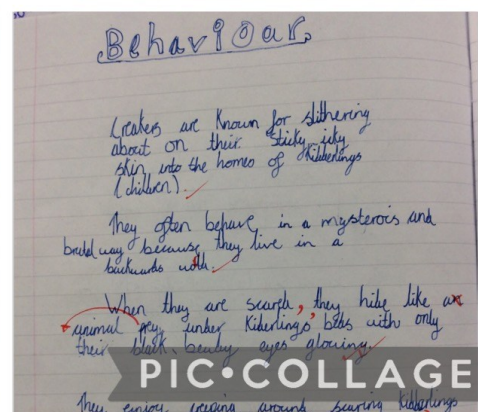 Behaviour
Creakers are Known for slithering
about on their sticky icky
skin into the homes of Kibberlings
(children).
They often behave in a mysterois and
way because they live in a
backwards
When they are scared, they hide like a
animal prey under Kiberlings' beds with only
their black, beady eyes glowing.
PIC•COLLAGE
They enjoy creeping around scaring Kibberlings